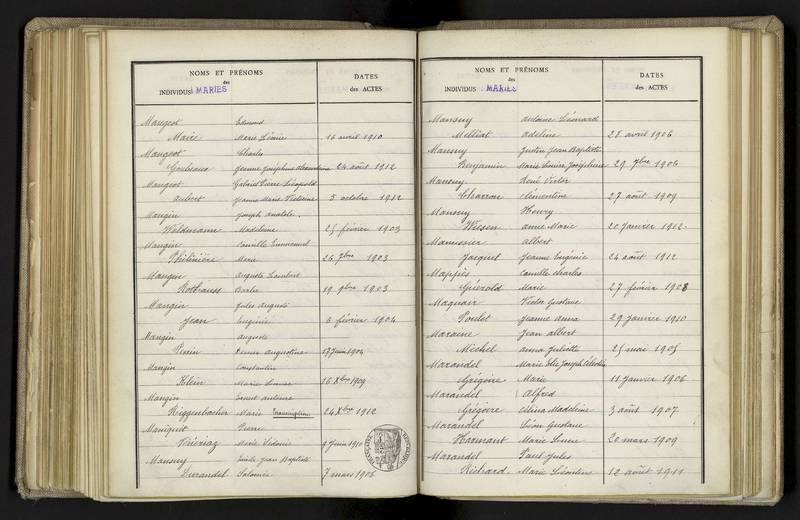 NOMS ET PRÉNOMS
des
INDIVIDUS MARIES
DATES
des ACTES
Mangeot Edmond
Maire Marie Léonie 16 avril 1910
Mangeot Charles
Gorbeaux Jeanne Joséphine 24 août 1912
Mangeot Gabriel Pierre Léopold
Aubert Jeanne Marie Victorine 3 octobre 1912
Mangin Joseph Anatole
Woldmann Madeleine 25 février 1903
Mangin Camille Emmanuel
Philinière Marie 26 7bre 1903
Mangin Auguste Lambert
Rothauss Barbe 19 9bre 1903
Mangin Jules Auguste
Jean Eugénie 6 février 1904
Mangin Auguste
Pénin Augustine 17 Juin 1904
Mangin Constantin
Klein Marie Louise 16 Xbre 1909
Mangin Ernest Antoine
Riggenbacher Marie 24 Xbre 1912
Manignot Pierre
Marie Ludovie 9 Juin 1910
Mansuy Emile Jean Baptiste
Durandel Salomée 7 mars 1906
NOMS ET PRÉNOMS
des
INDIVIDUS MARIES
DATES
des ACTES
Mansuy Antoine Léonard
Melliat Adeline 28 avril 1906
Mansuy Justin Jean Baptiste
Benjamin Marie Louise Joséphine 29 7bre 1906
Mansuy René Victor
Charron Clémentine 27 août 1909
Mansuy Henry
Wiesen Anne Marie 20 Janvier 1912
Albert
Jacquet Jeanne Eugénie 24 août 1912
Mappès Camille Charles
Giérold Marie 27 février 1908
Maquair Victor Gustave
Poulet Jeanne Anna 29 Janvier 1910
Maraine Jean Albert
Michel Anna Juliette 25 mai 1905
Marandel Marie Elie Joseph
Grégoire Marie 11 Janvier 1906
Marandel Alfred
Grégoire Célina Madeleine 3 août 1907
Marandel Léon Gustave
Hannant Marie Louise 20 mars 1909
Marandel Paul Jules
Richard Marie Léontine 12 août 1911